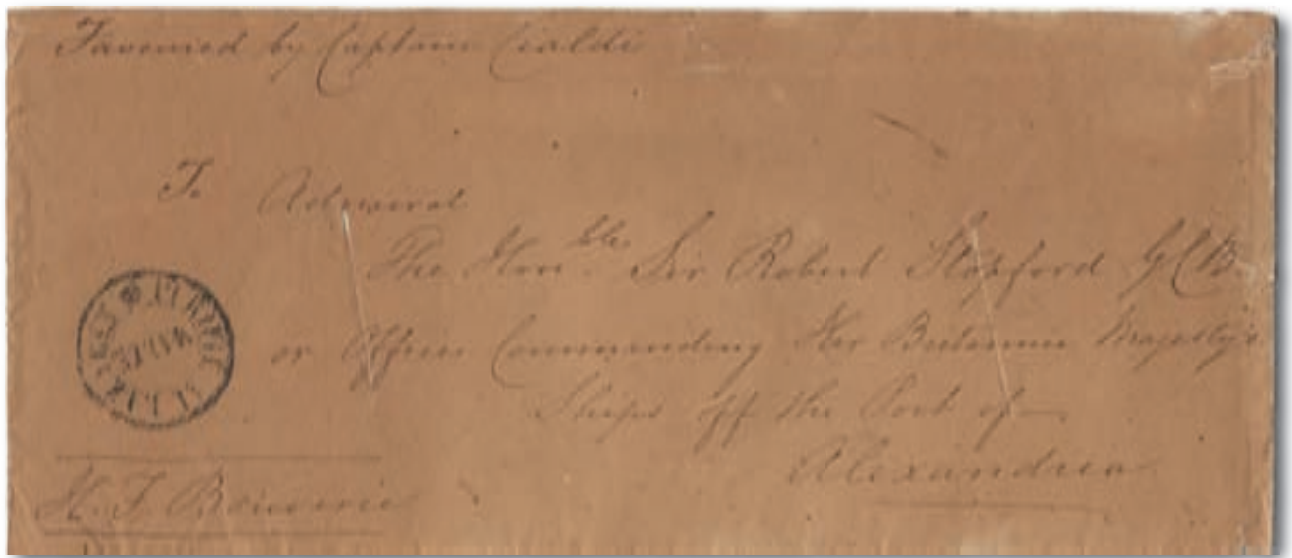 Favoured by Captain Cialdi
To Admiral
The Honble. Sir Robert Stopford GCB
or Officer Commanding Her Britannic Majesty's
Ships off the Port of
Alexandria